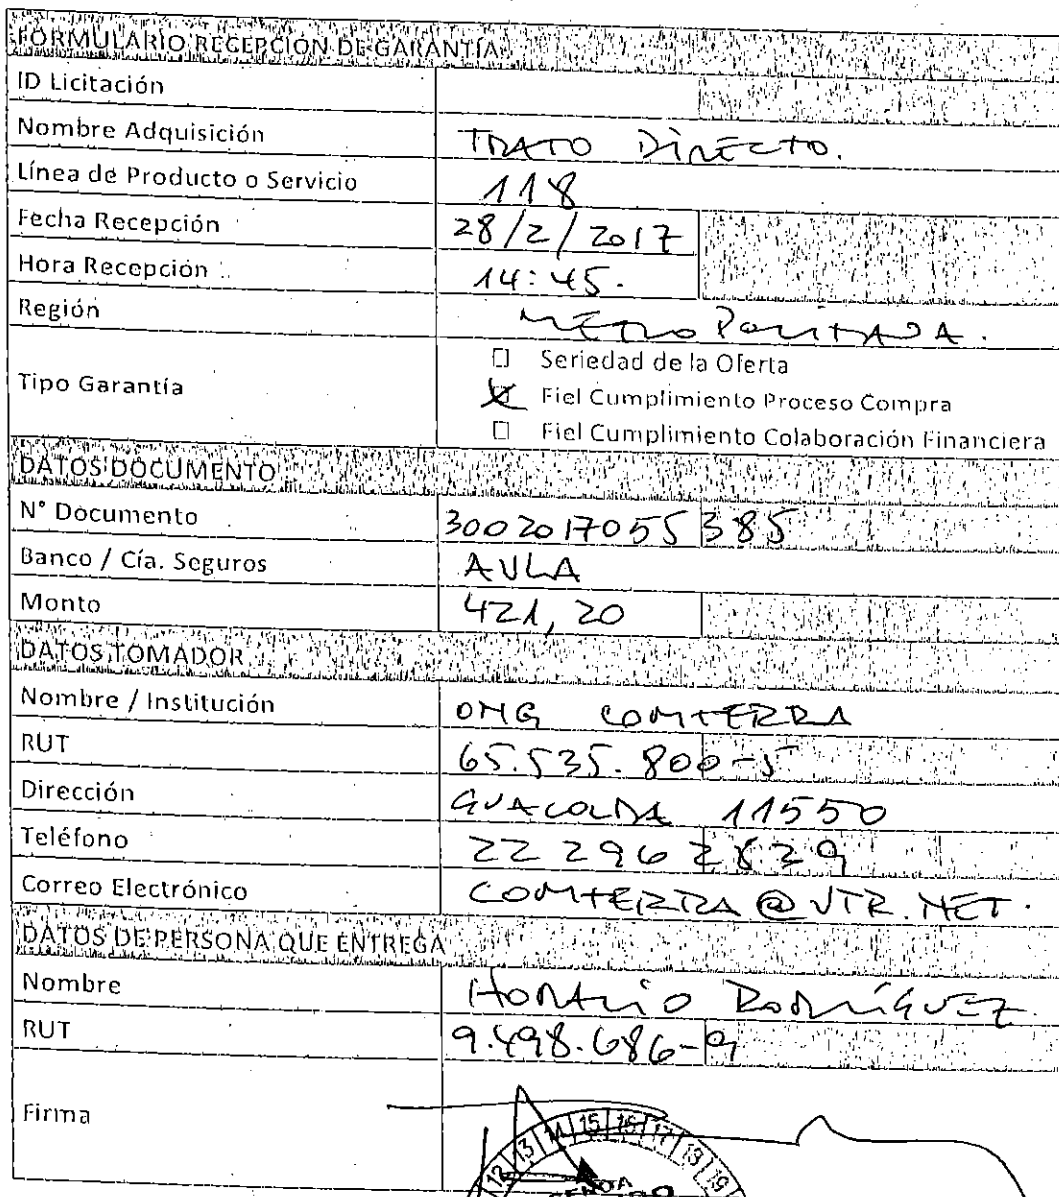 FORMULARIO RECEPCIÓN DE GARANTÍA
ID Licitación
Nombre Adquisición TRATO DIRECTO.
Línea de Producto o Servicio 118
Fecha Recepción 28/2/2017
Hora Recepción 14:45.
Región METROPOLITANA.
Tipo Garantía
Seriedad de la Oferta
Fiel Cumplimiento Proceso Compra
Fiel Cumplimiento Colaboración Financiera
DATOS DOCUMENTO
N° Documento 3002017055385
Banco / Cía. Seguros AVLA
Monto 421,20
DATOS TOMADOR
Nombre / Institución ONG COMTERRA
RUT 65.535.800-5
Dirección GUACOLDA 11550
Teléfono 22 2962829
Correo Electrónico COMTERRA@VTR.NET.
DATOS DE PERSONA QUE ENTREGA
Nombre HORACIO RODRÍGUEZ
RUT 9.498.686-9
Firma
12 13 14 15 16 17 18 19